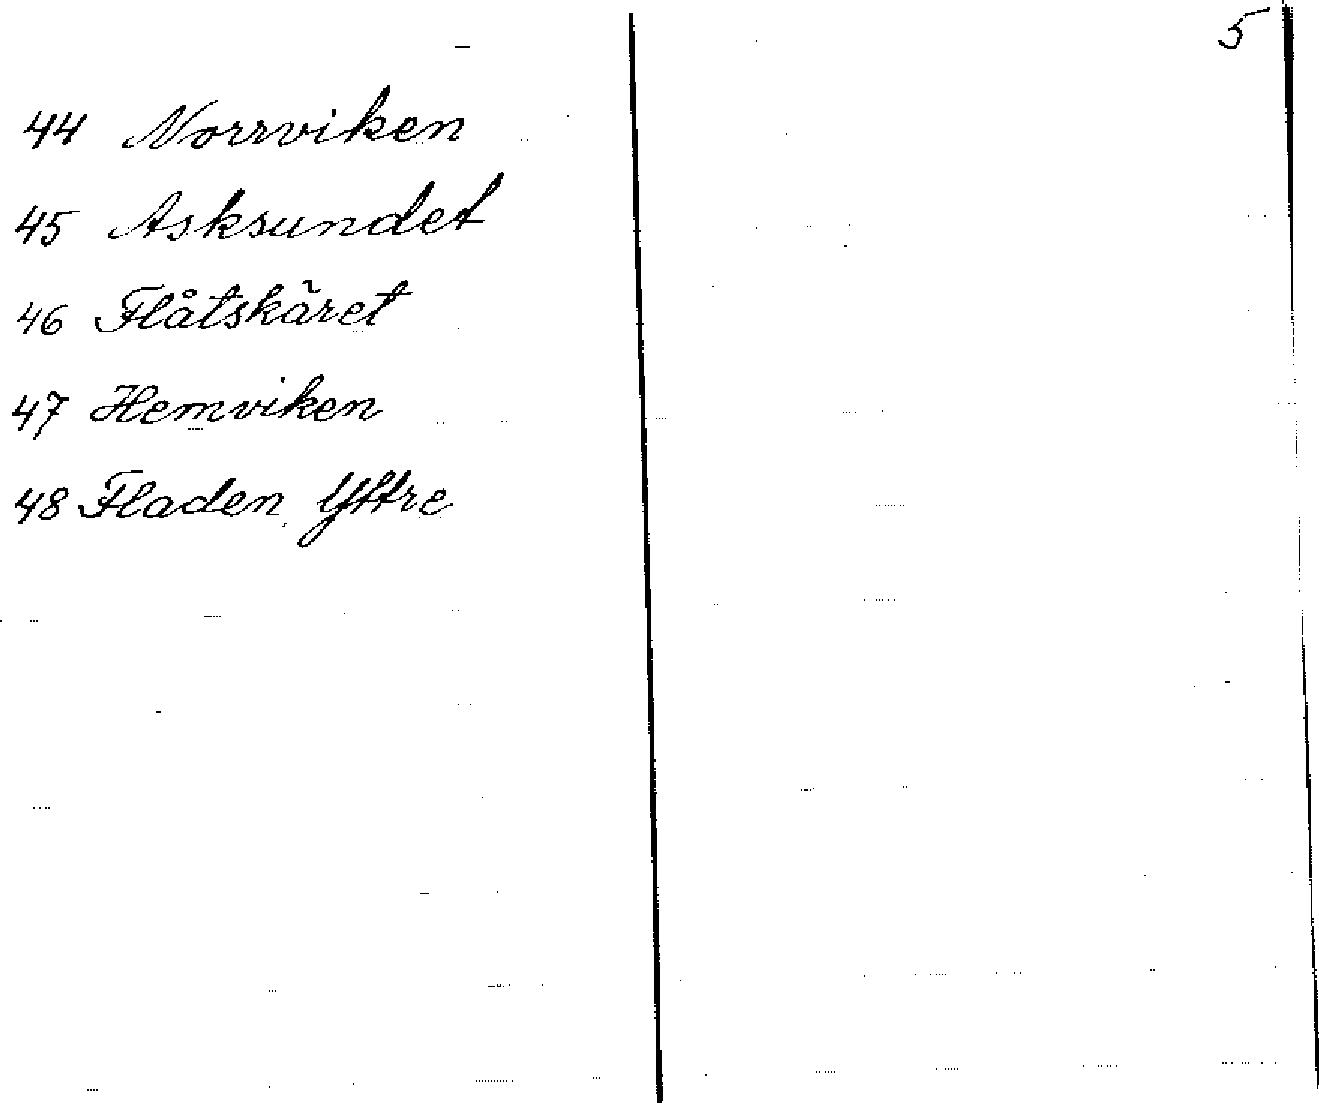 5
44 Norrviken
45 Asksundet
46 Flåtskäret
47 Hemviken
48 Fladen, Yttre